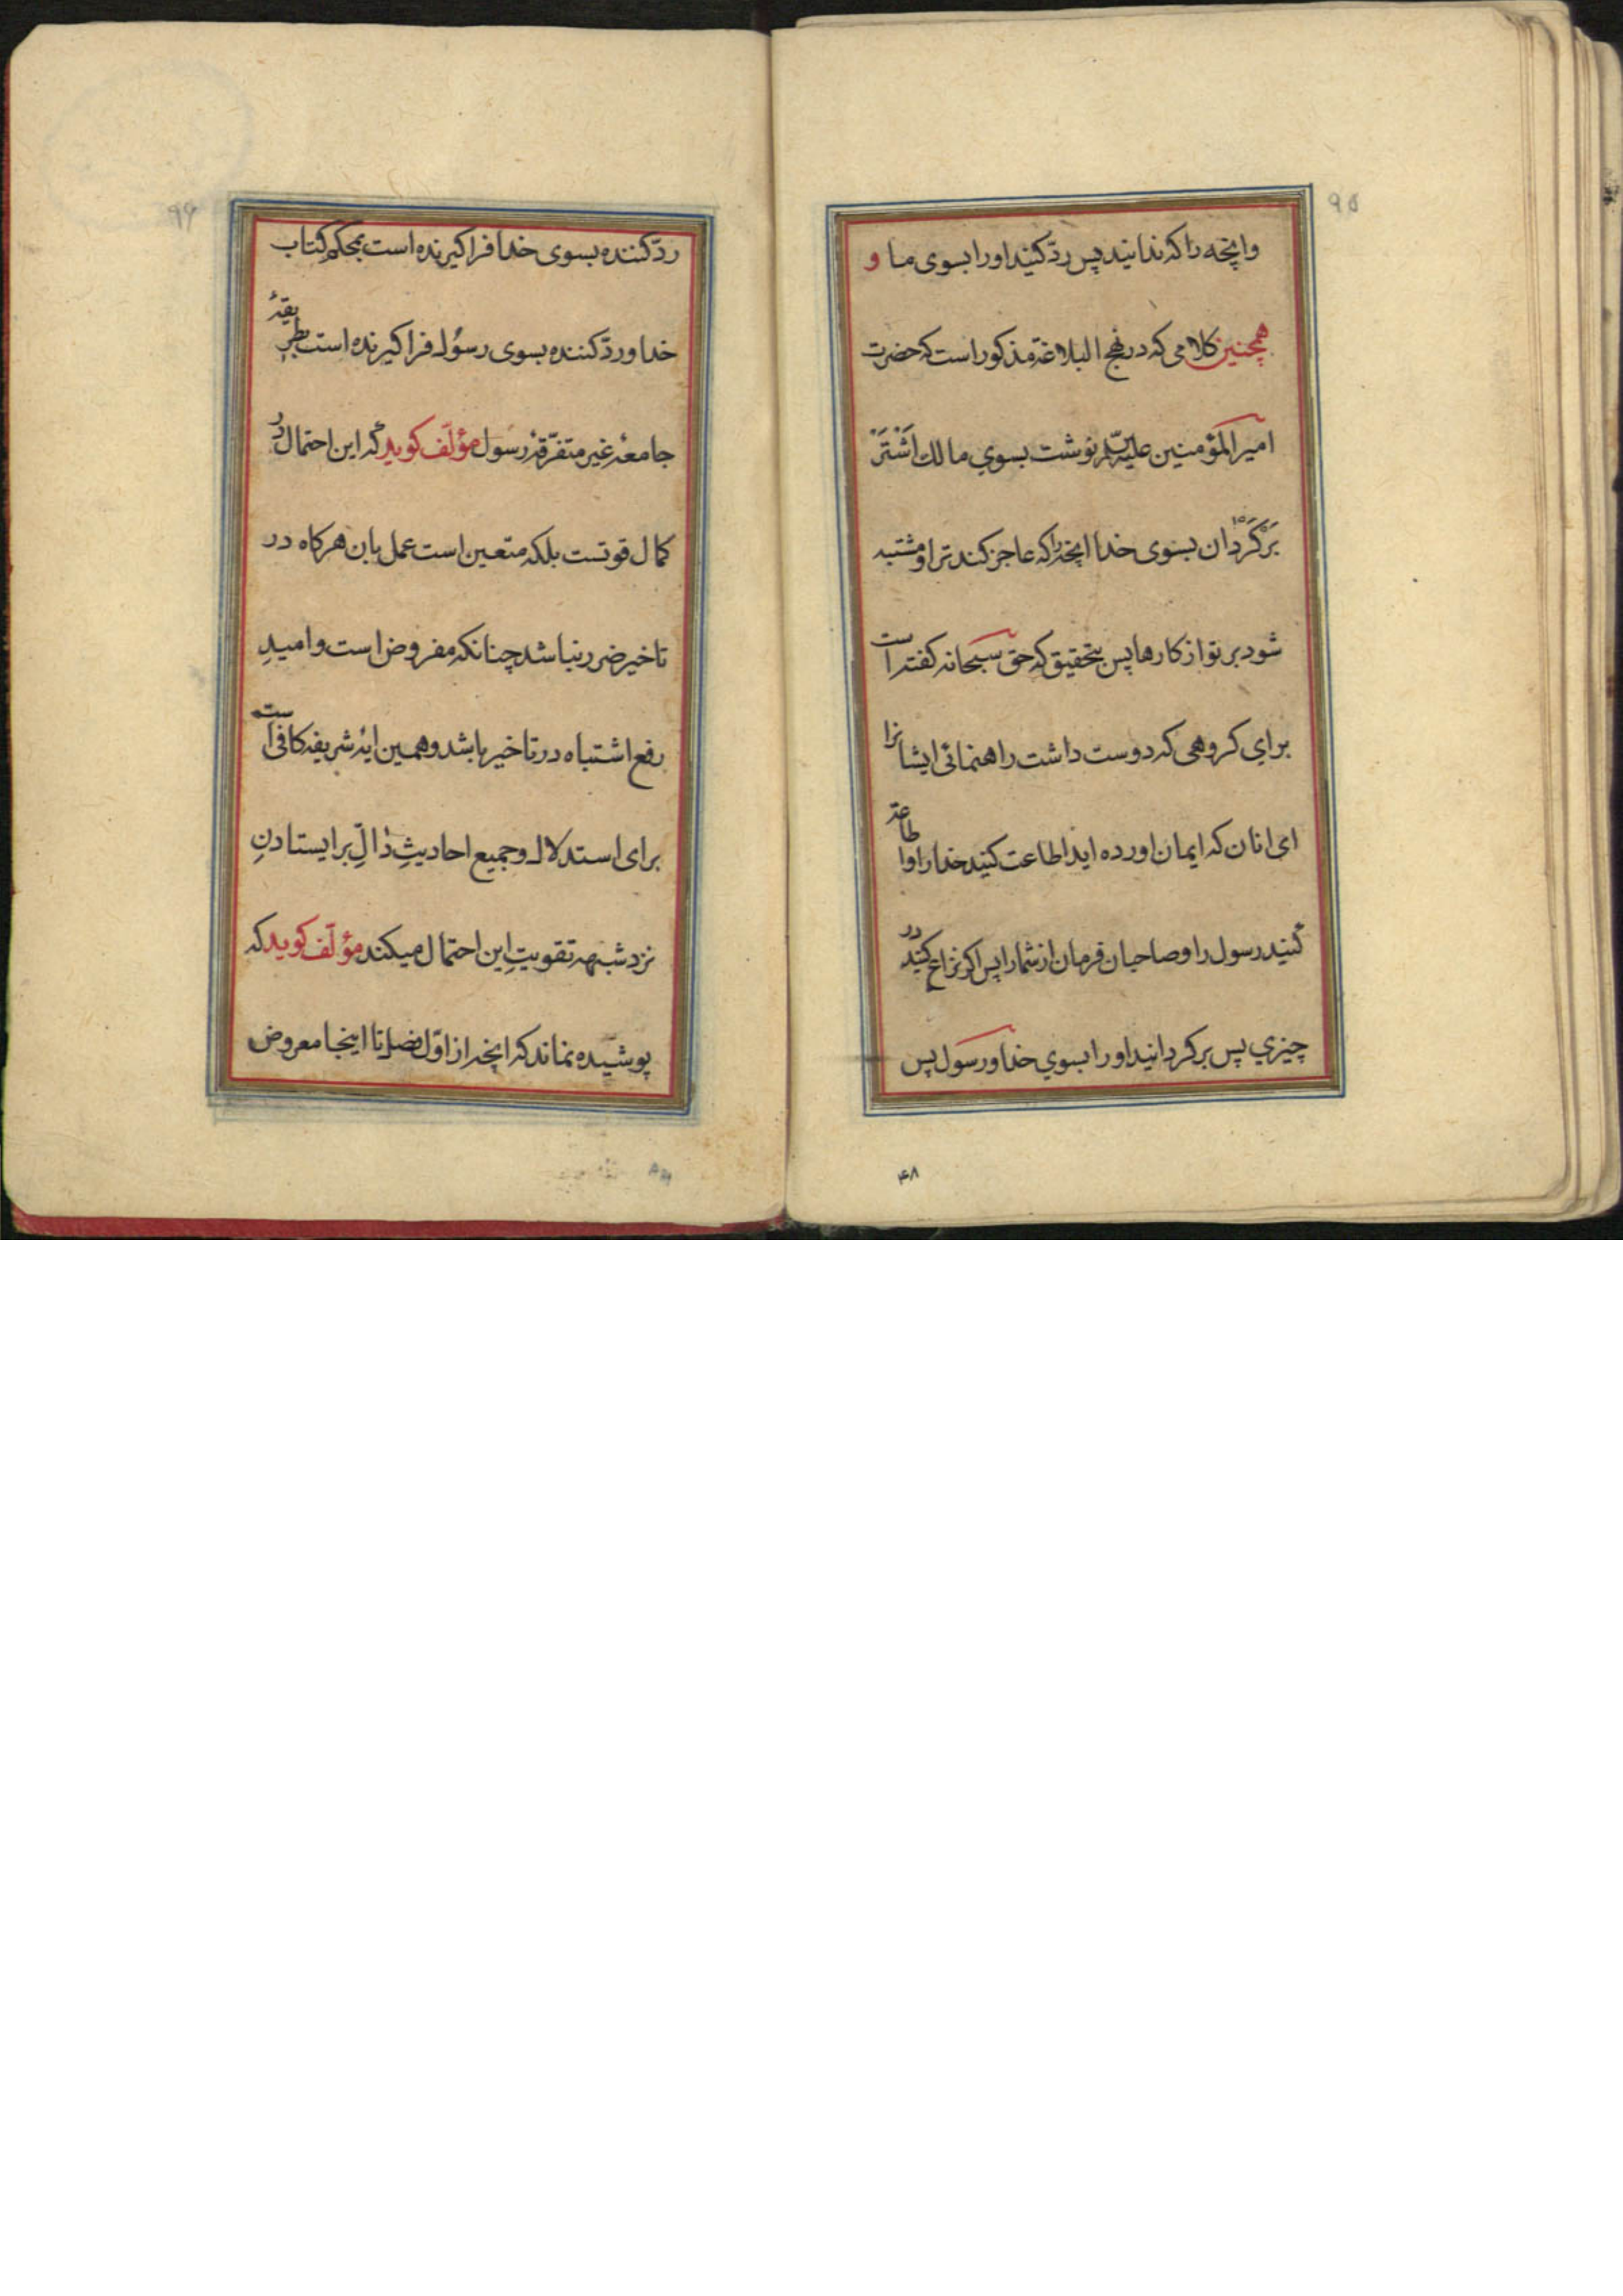 ۹۵
وانچه را که ندانید پس ردّ کنید او را بسوی ما و
همچنین کلامی که در نهج البلاغة مذکور است که حضرت
امیرالمؤمنین علیه السلام نوشت بسوي مالك اَشْتَرْ
بَرْگَرْدان بسوی خدا انچه را که عاجز کند ترا و مشتبه
شود بر تو از کارها پس بتحقیق که حق سبحانه کفته است
براي کروهی که دوست داشت راهنمائی ایشانرا
ای انان که ایمان اورده اید اطاعت کنید خدا را و اطاعة
کنید رسول را و صاحبان فرمان از شما را پس اکر نزاع کنید در
چیزي پس برکردانید او را بسوي خدا و رسول پس
۴۸
۹۶
ردّ کننده بسوی خدا فراکیرنده است بمحکم کتاب
خدا و ردّ کننده بسوی رسول فراکیرنده است بطریقهٔ
جامعهٔ غیر متفرّقهٔ رسول مؤلّف کوید که این احتمال در
کمال قوتست بلکه متعین است عمل بان هرکاه در
تاخیر ضرر نباشد چنانکه مفروض است و امیدِ
رفع اشتباه در تاخیر باشد و همین ایهٔ شریفه کافی است
برای استدلال و جمیع احادیثِ دالِّ بر ایستادنِ
نزد شبهه تقویتِ این احتمال میکند مؤلّف کوید که
پوشیده نماند که انچه از اوّل فصل تا اینجا معروض